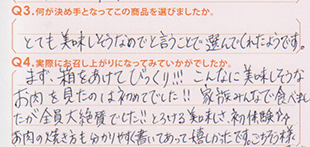 Q3.何が決め手となってこの商品を選びましたか。
とても美味しそうなのでと言うことで選んでくれたようです。
Q4.実際にお召し上がりになってみていかがでしたか。
まず、箱をあけてびっくり!!! こんなに美味しそうな
お肉を見たのは初めてでした!! 家族みんなで食べまし
たが全員大絶賛でした!! とろける美味しさ、初体験かも
お肉の焼き方も分かりやすく書いてあって嬉しかったです。ごちそう様